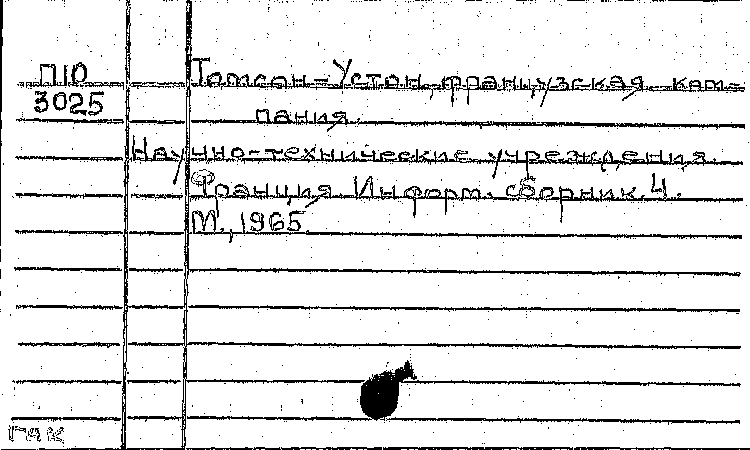 П10 Томсон-Устон, французская ком-
3025 пания.
Научно-технические учреждения.
Франция. Информ. сборник. 4.
М., 1965